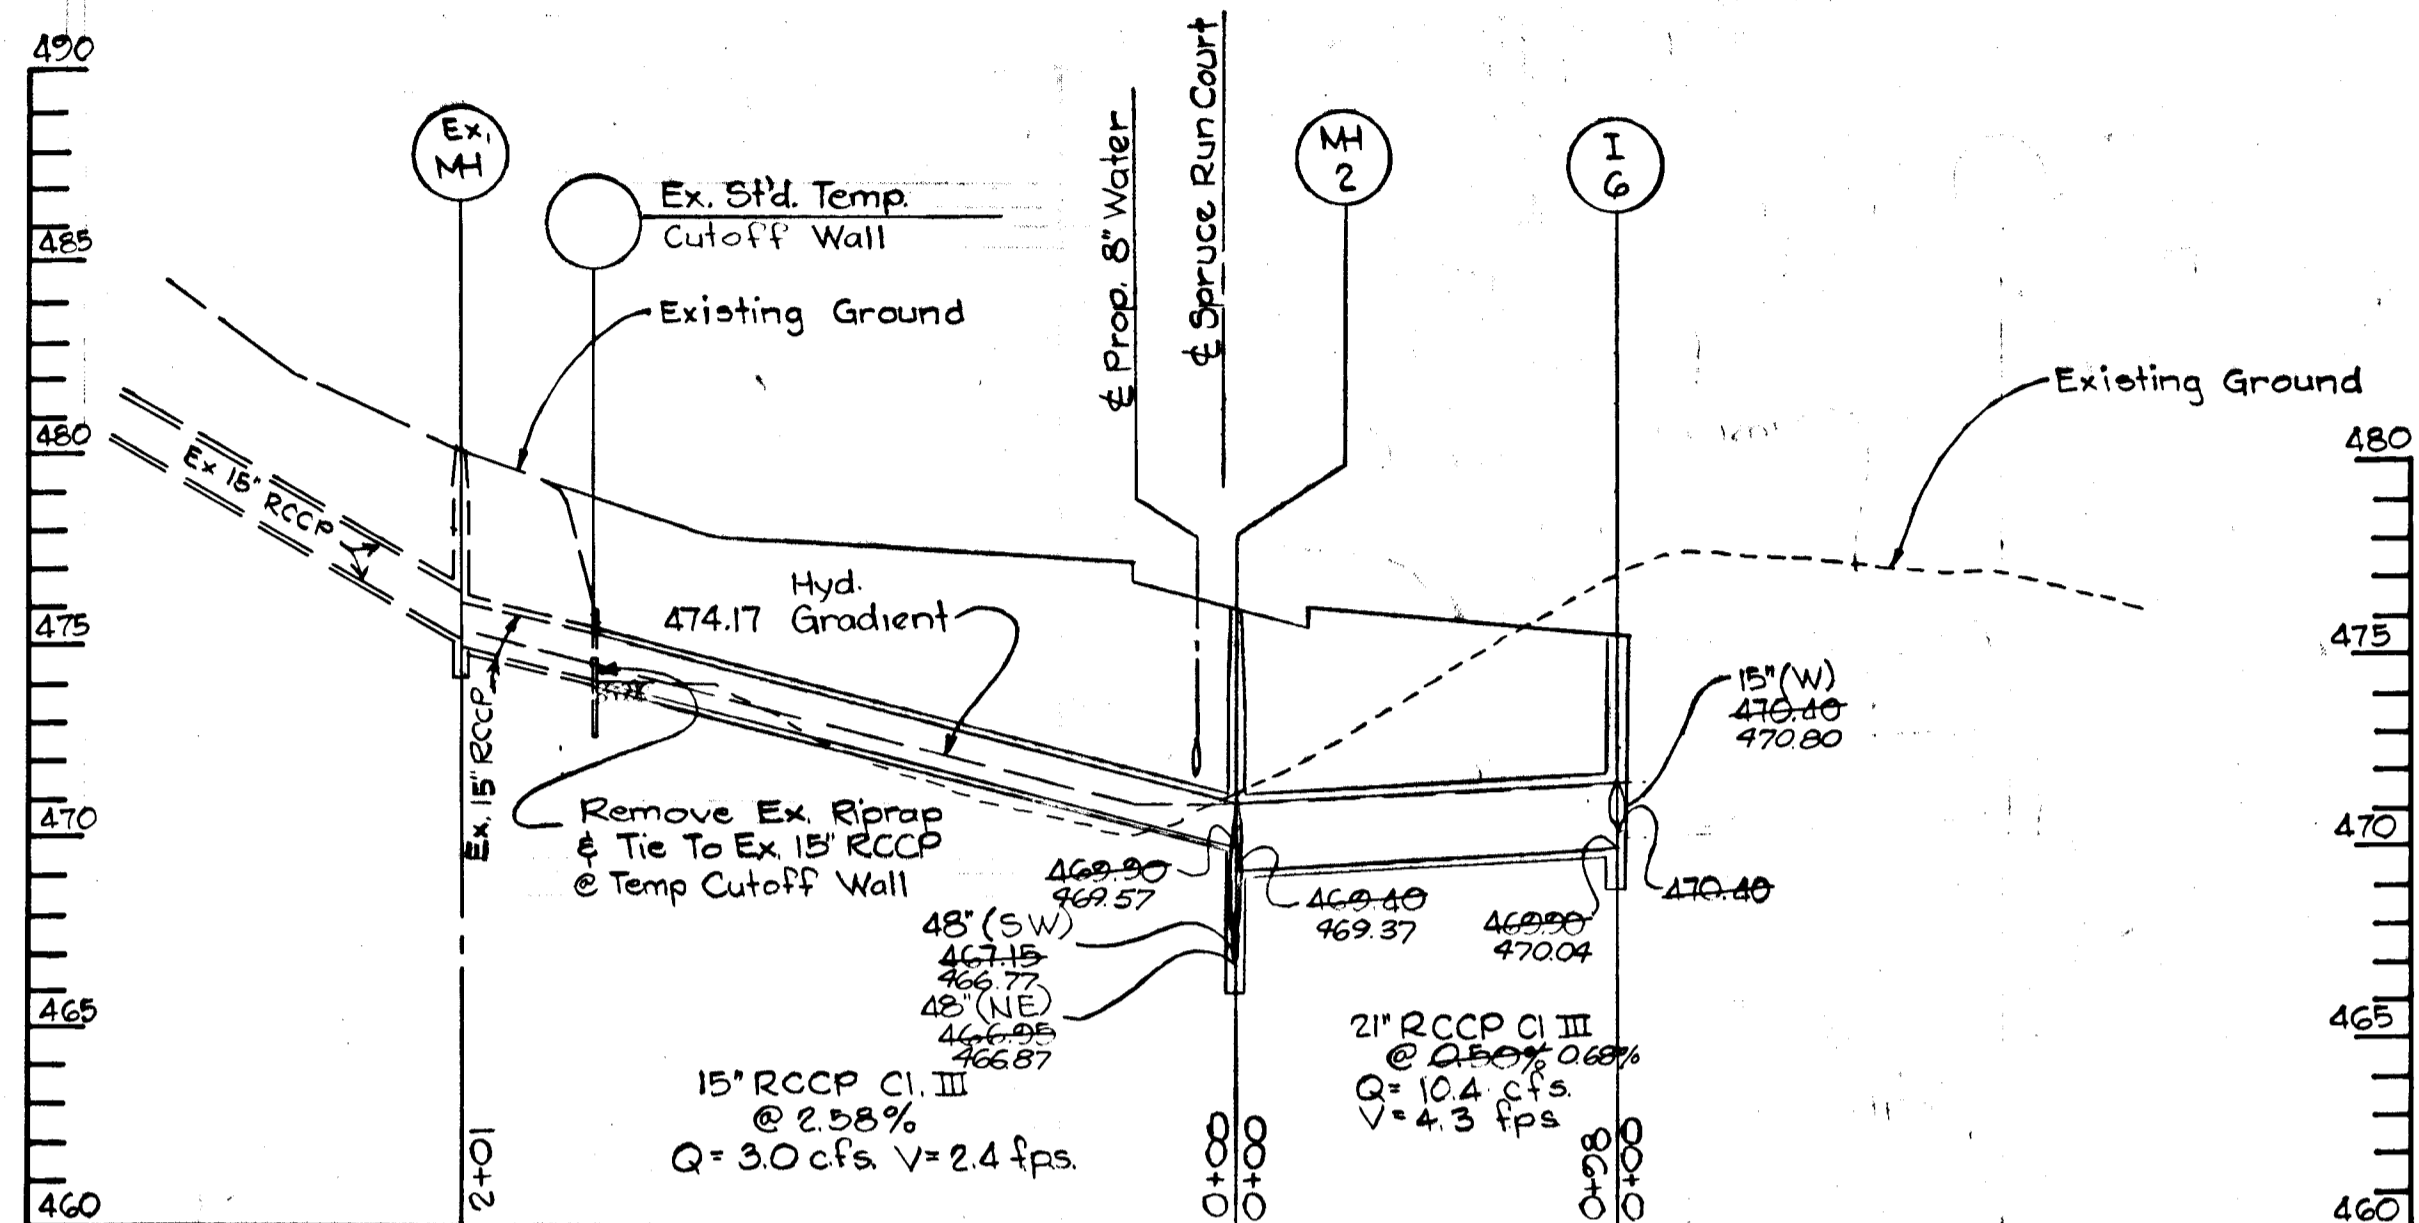 490
485
480
475
470
465
460
Ex.
MH
Ex. St'd. Temp.
Cutoff Wall
Existing Ground
℄ Prop. 8" Water
℄ Spruce Run Court
MH
2
I
6
Existing Ground
480
475
470
465
460
Ex 15" RCCP
Hyd.
474.17 Gradient
Ex. 15" RCCP
Remove Ex. Riprap
& Tie To Ex. 15" RCCP
@ Temp Cutoff Wall
15" (W)
470.40
470.80
470.40
469.90
469.57
469.40
469.37
469.90
470.04
48" (SW)
467.15
466.77
48" (NE)
466.95
466.87
15" RCCP Cl. III
@ 2.58%
Q= 3.0 cfs. V= 2.4 fps.
21" RCCP Cl III
@ 0.50% 0.68%
Q= 10.4 cfs.
V= 4.3 fps
2+01
0+00
0+00
0+98
0+00